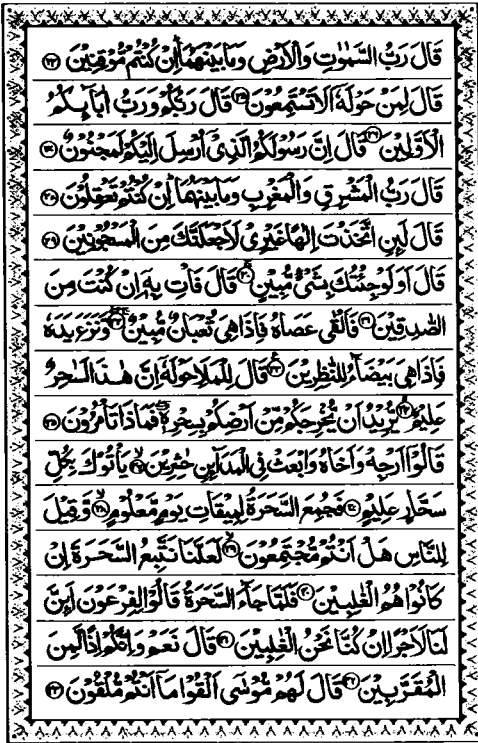 قَالَ رَبُّ السَّمٰوٰتِ وَالْاَرْضِ وَمَا بَيْنَهُمَا اِنْ كُنْتُمْ مُّوْقِنِيْنَ
قَالَ لِمَنْ حَوْلَهٗ اَلَا تَسْتَمِعُوْنَ ۝۲۵ قَالَ رَبُّكُمْ وَرَبُّ اٰبَآئِكُمُ
الْاَوَّلِيْنَ ۝۲۶ قَالَ اِنَّ رَسُوْلَكُمُ الَّذِيْۤ اُرْسِلَ اِلَيْكُمْ لَمَجْنُوْنٌ
قَالَ رَبُّ الْمَشْرِقِ وَالْمَغْرِبِ وَمَا بَيْنَهُمَا اِنْ كُنْتُمْ تَعْقِلُوْنَ
قَالَ لَئِنِ اتَّخَذْتَ اِلٰهًا غَيْرِيْ لَاَجْعَلَنَّكَ مِنَ الْمَسْجُوْنِيْنَ ۝۲۹
قَالَ اَوَلَوْ جِئْتُكَ بِشَيْءٍ مُّبِيْنٍ ۝۳۰ قَالَ فَاْتِ بِهٖۤ اِنْ كُنْتَ مِنَ
الصّٰدِقِيْنَ ۝۳۱ فَاَلْقٰى عَصَاهُ فَاِذَا هِيَ ثُعْبَانٌ مُّبِيْنٌ ۝۳۲ وَّنَزَعَ يَدَهٗ
فَاِذَا هِيَ بَيْضَآءُ لِلنّٰظِرِيْنَ ۝۳۳ قَالَ لِلْمَلَاِ حَوْلَهٗۤ اِنَّ هٰذَا لَسٰحِرٌ
عَلِيْمٌ ۝۳۴ يُّرِيْدُ اَنْ يُّخْرِجَكُمْ مِّنْ اَرْضِكُمْ بِسِحْرِهٖ فَمَاذَا تَاْمُرُوْنَ ۝۳۵
قَالُوْۤا اَرْجِهْ وَاَخَاهُ وَابْعَثْ فِي الْمَدَآئِنِ حٰشِرِيْنَ ۝۳۶ يَاْتُوْكَ بِكُلِّ
سَحَّارٍ عَلِيْمٍ ۝۳۷ فَجُمِعَ السَّحَرَةُ لِمِيْقَاتِ يَوْمٍ مَّعْلُوْمٍ ۝۳۸ وَّقِيْلَ
لِلنَّاسِ هَلْ اَنْتُمْ مُّجْتَمِعُوْنَ ۝۳۹ لَعَلَّنَا نَتَّبِعُ السَّحَرَةَ اِنْ
كَانُوْا هُمُ الْغٰلِبِيْنَ ۝۴۰ فَلَمَّا جَآءَ السَّحَرَةُ قَالُوْا لِفِرْعَوْنَ اَئِنَّ
لَنَا لَاَجْرًا اِنْ كُنَّا نَحْنُ الْغٰلِبِيْنَ ۝۴۱ قَالَ نَعَمْ وَاِنَّكُمْ اِذًا لَّمِنَ
الْمُقَرَّبِيْنَ ۝۴۲ قَالَ لَهُمْ مُّوْسٰۤى اَلْقُوْا مَاۤ اَنْتُمْ مُّلْقُوْنَ ۝۴۳